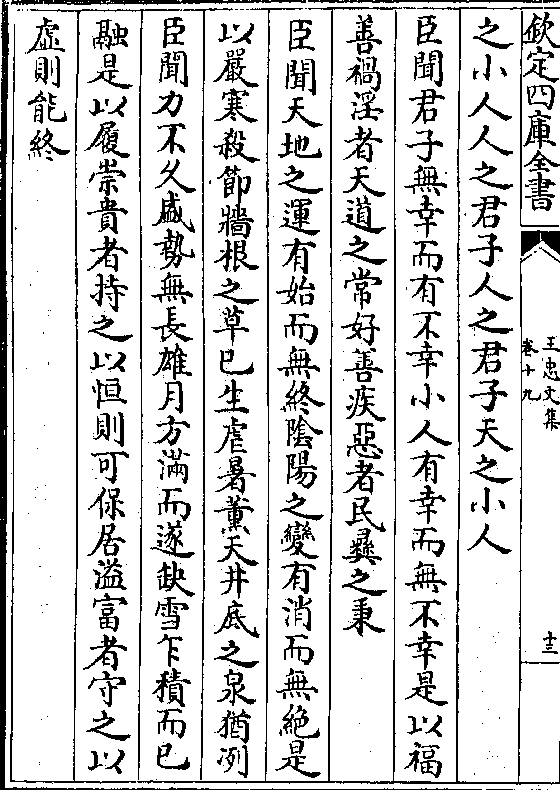 欽定四庫全書
王忠文集
卷十九
十三
之小人人之君子人之君子天之小人
臣聞君子無幸而有不幸小人有幸而無不幸是以福
善禍淫者天道之常好善疾惡者民彝之秉
臣聞天地之運有始而無終陰陽之變有消而無絶是
以嚴寒殺節牆根之草已生虐暑薰天井底之泉猶冽
臣聞力不久盛勢無長雄月方滿而遂缺雪乍積而已
融是以履崇貴者持之以恒則可保居溢富者守之以
虚則能終